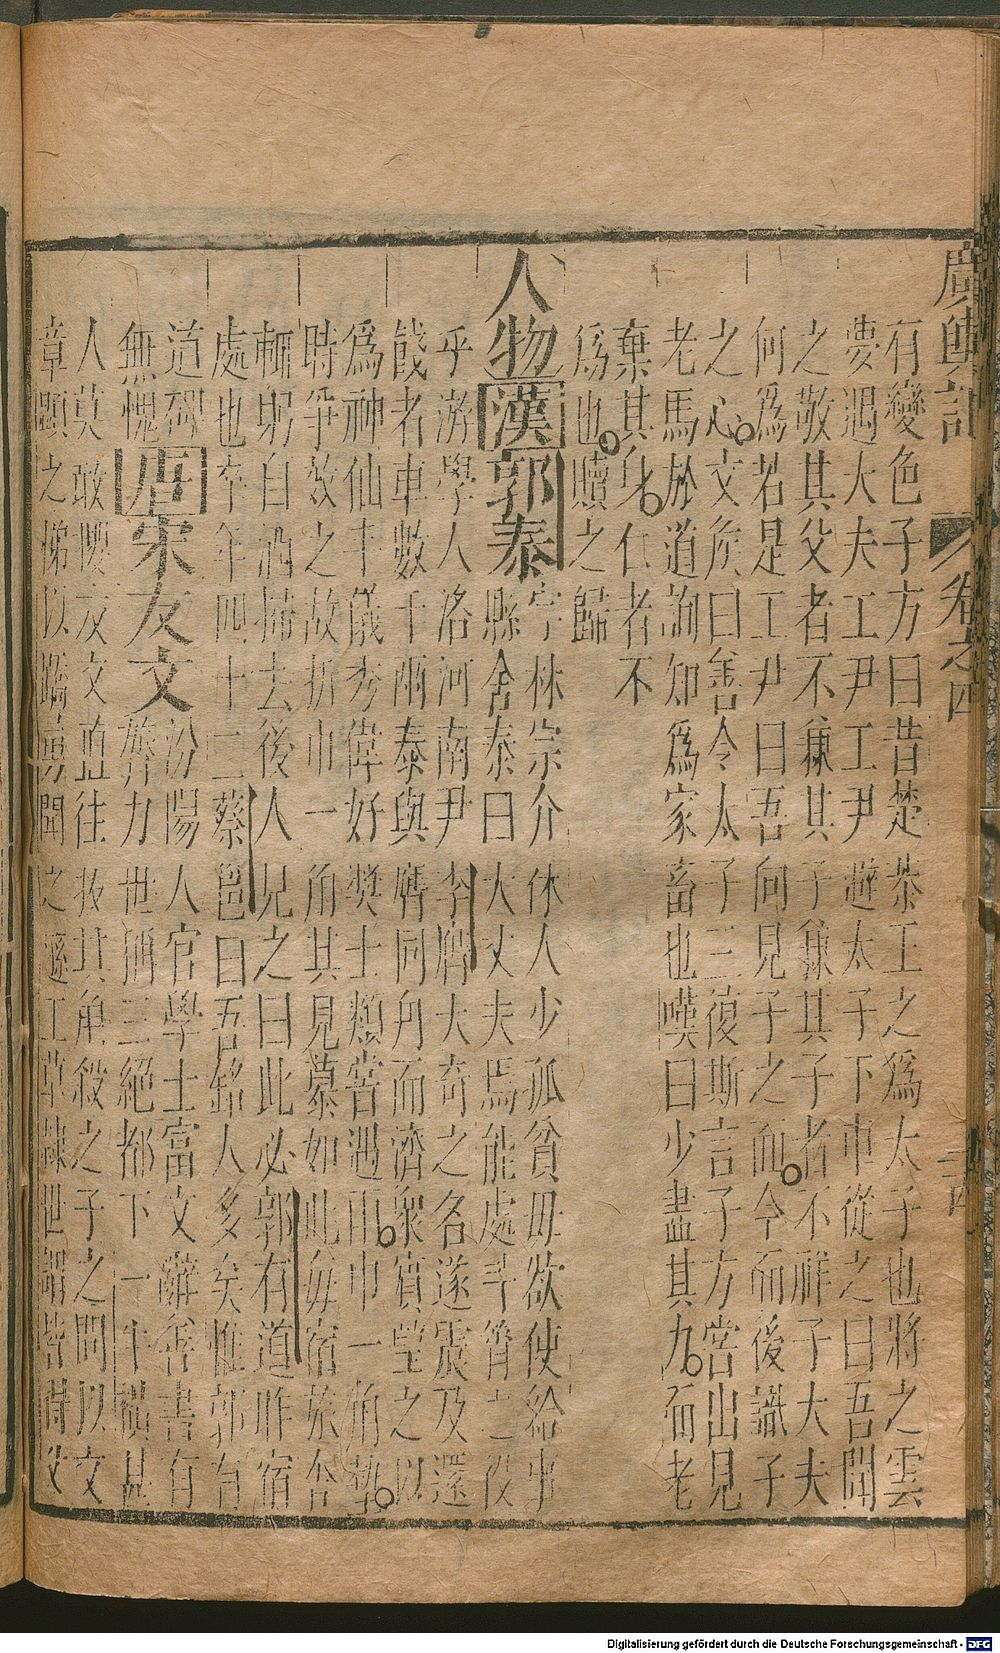 廣輿記 卷之四
有變色子方曰昔楚恭王之爲太子也將之雲
夢遇大夫工尹工尹避太子下車從之曰吾聞
之敬其父者不兼其子兼其子者不祥子大夫
何爲若是工尹曰吾向見子之面今而後識子
之心文侯曰善令太子三復斯言子方嘗出見
老馬於道詢知爲家畜也嘆曰少盡其力而老
棄其身仁者不
爲也贖之歸
人物漢郭泰字林宗介休人少孤貧母欲使給事
縣舍泰曰大丈夫焉能處斗筲之役
乎游學人洛河南尹李膺大奇之名遂震及還
餞者車數千兩泰與膺同舟而濟衆賓望之以
爲神仙千儀秀偉好獎士類嘗遇雨巾一角墊
時爭效之故折巾一角其見慕如此每宿旅舍
輒躬自洒掃去後人見之曰此必郭有道昨宿
處也卒年四十二蔡邕曰吾銘人多矣惟郭有
道碑
無愧唐宋友文汾陽人官學士富文辭善書有
膂力世稱三絕都下一牛橫甚
人莫敢攖友文直往扳其角殺之子之問以文
章顯之悌以驍勇聞之遜工草隸世謂皆得父
Digitalisierung gefördert durch die Deutsche Forschungsgemeinschaft - DFG